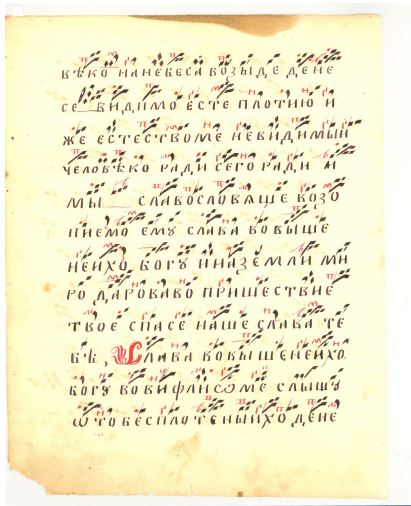 вѣко нанебеса возыде дене
се видимо есте плотию и
же естествоме невидимыи
человѣко ради сего ради и
мы славословяще возо
пиемо ему слава вовыше
неихо богу и наземли ми
ро дарова во пришествие
твое спасе наше слава те
бѣ, Слава вовышенеихо
богу вовифлисѡме слышу
ѡто бесплотеныихо дене